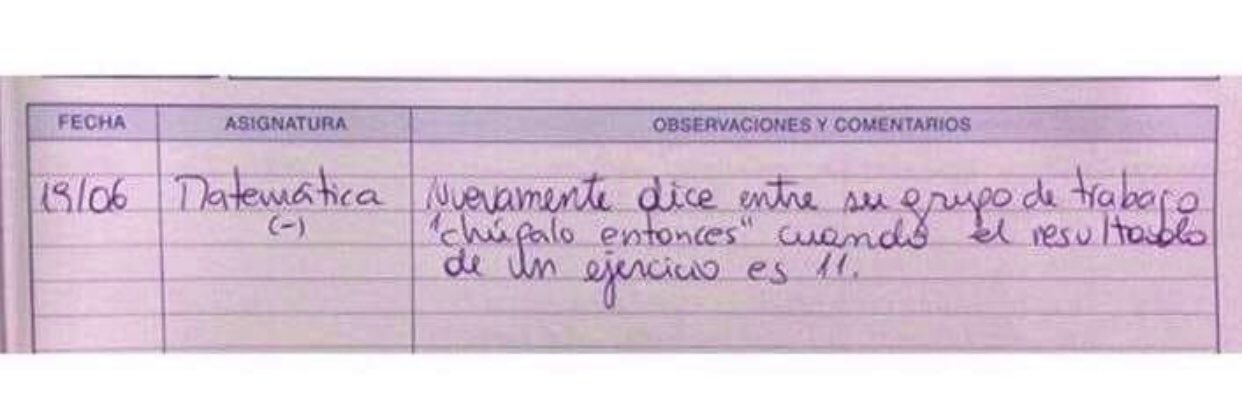 FECHA ASIGNATURA OBSERVACIONES Y COMENTARIOS
19/06 Matemática Nuevamente dice entre su grupo de trabajo
(-) "chúpalo entonces" cuando el resultado
de un ejercicio es 11.